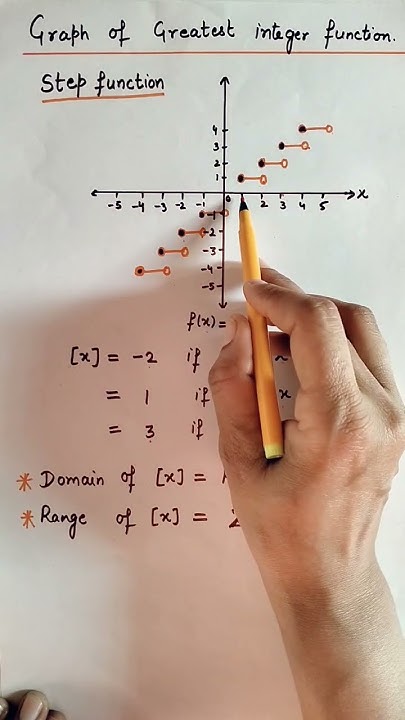 Graph of Greatest integer function.
Step function
4
3
2
1
x
-5 -4 -3 -2 -1 0 1 2 3 4 5
-1
-2
-3
-4
-5
f(x) =
[x] = -2 if
= 1 if x
= 3 if
* Domain of [x] =
* Range of [x] = Z